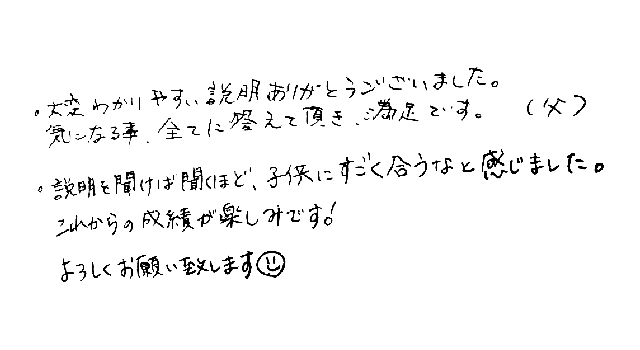 。大変わかりやすい説明ありがとうございました。
気になる事、全てに答えて頂き、満足です。 (父)
。説明を聞けば聞くほど、子供にすごく合うなと感じました。
これからの成績が楽しみです!
よろしくお願い致します☺